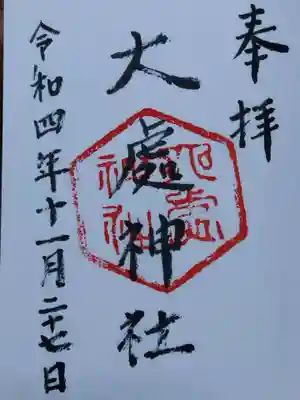 奉拝
大處神社
令和四年十一月二十七日